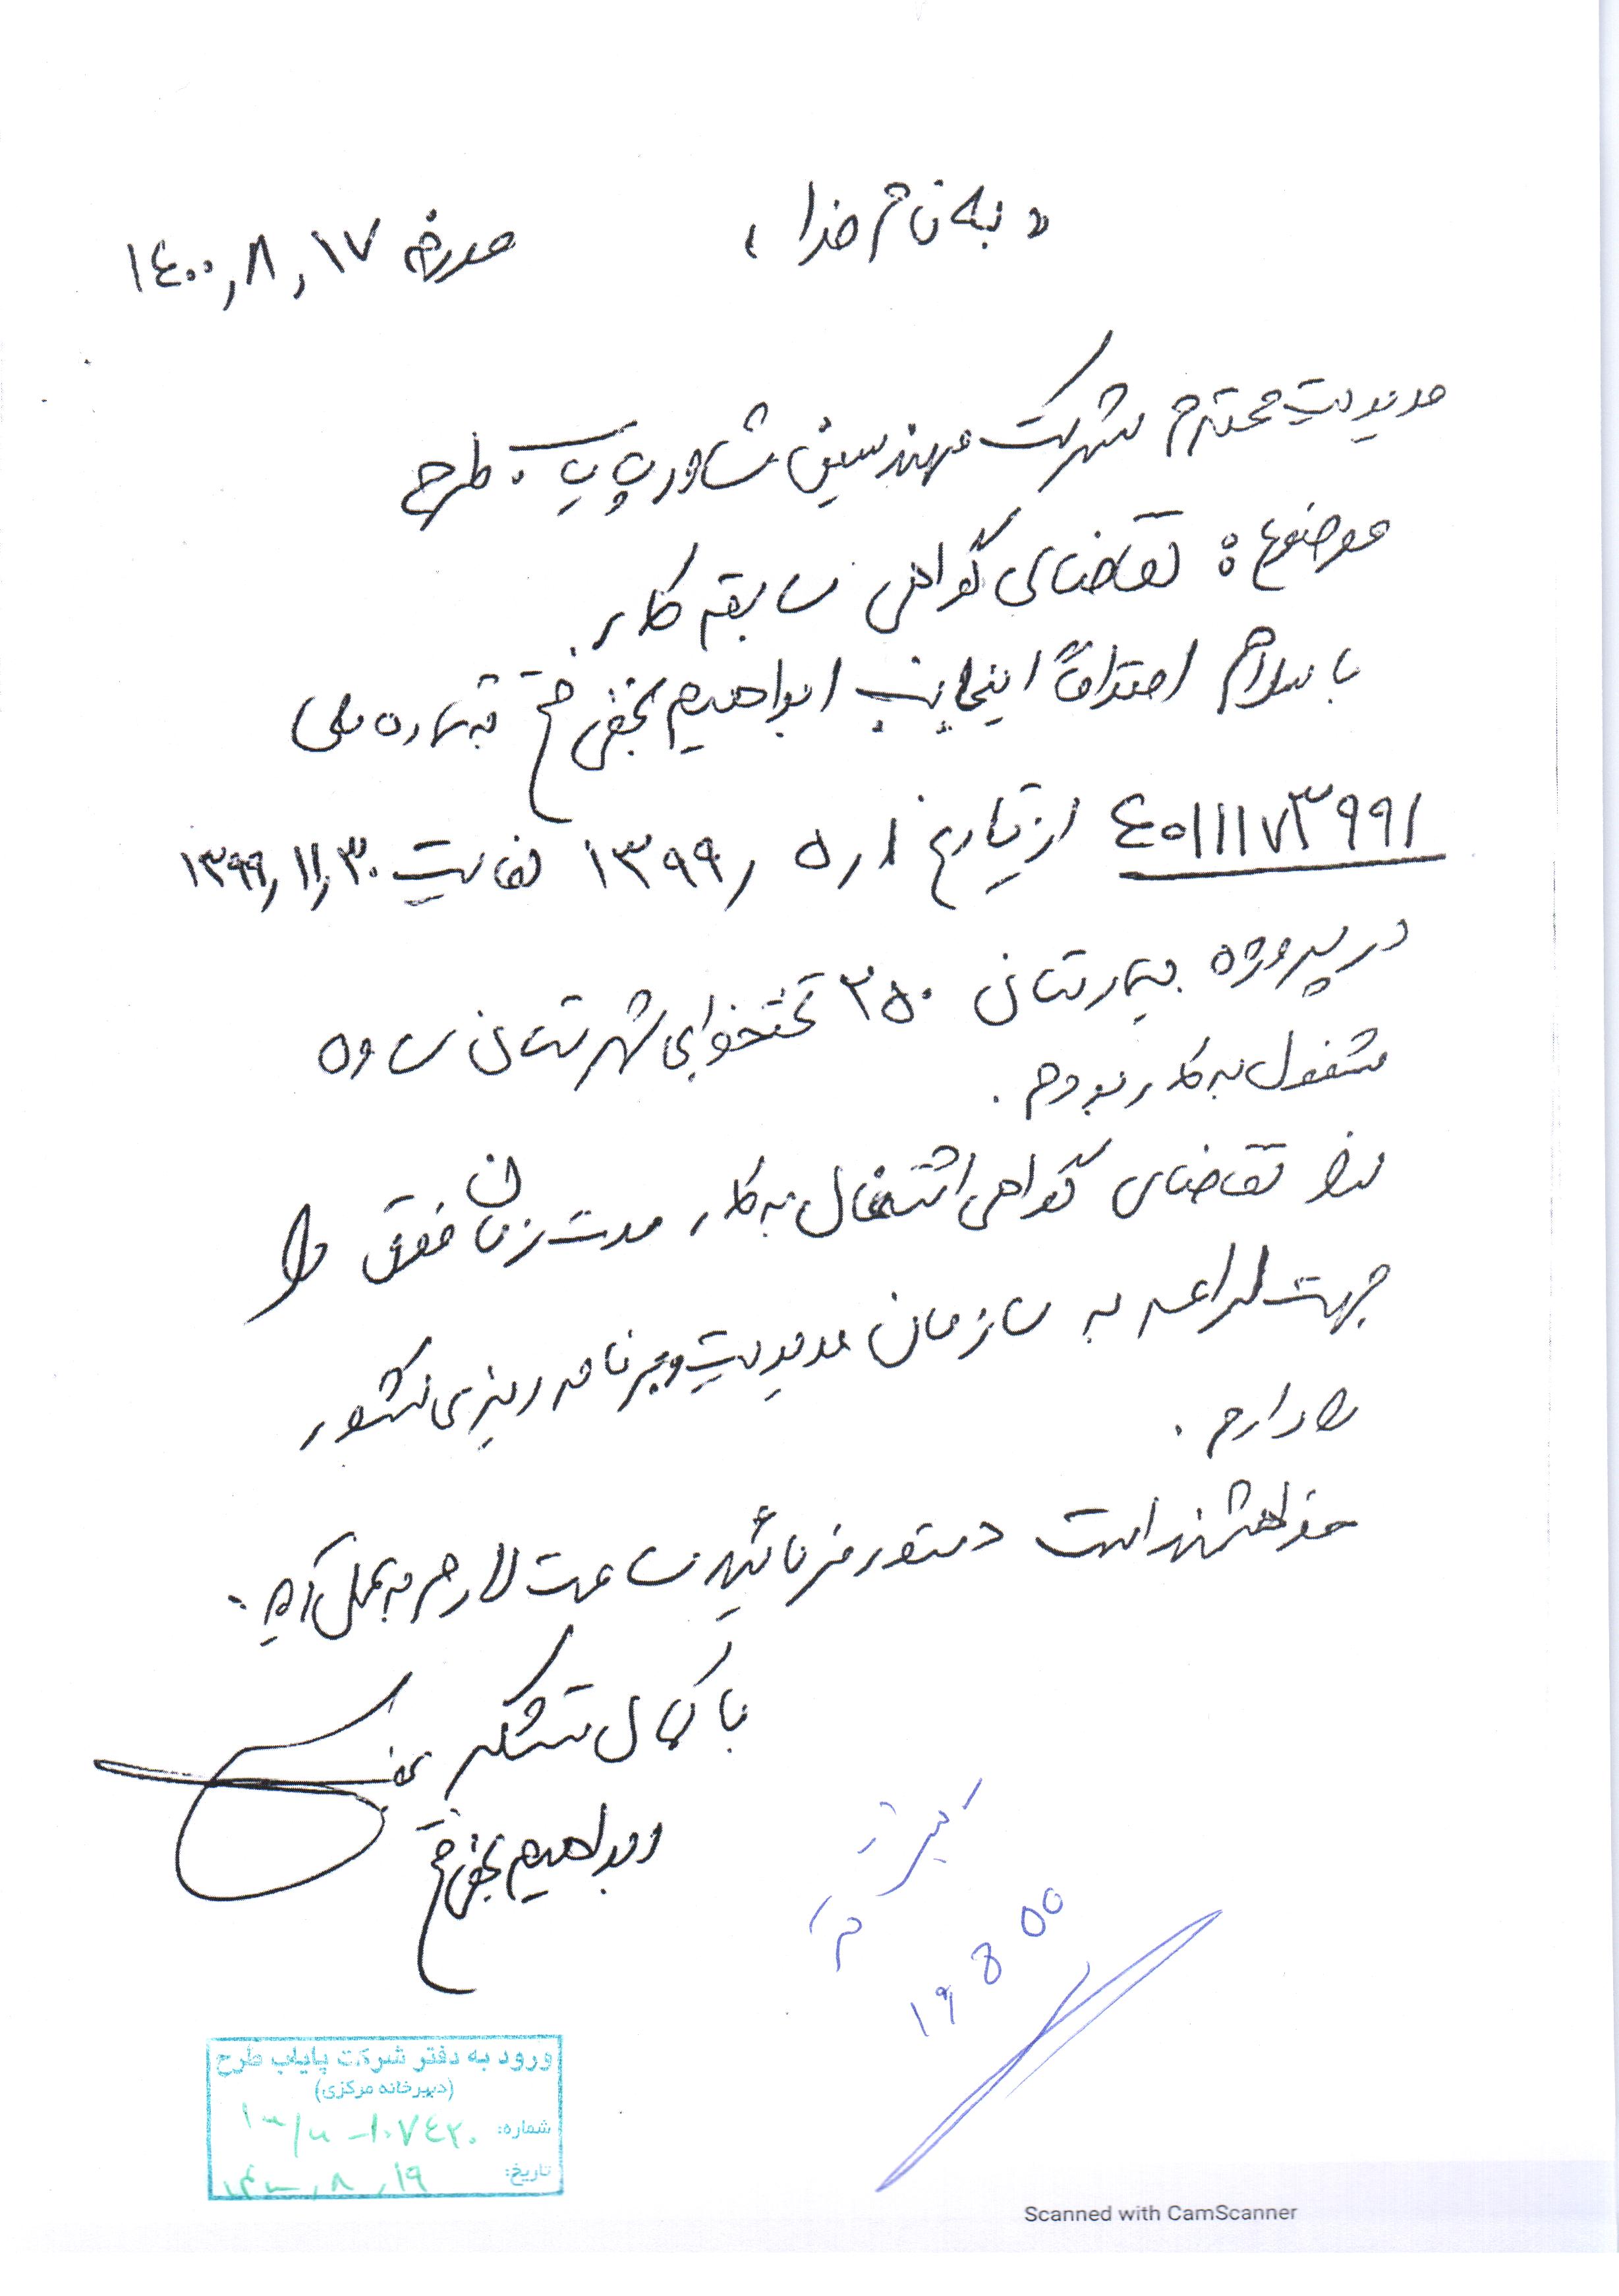 « به نام خدا »
مورخه ۱۴۰۰,۸,۱۷
مدیریت محترم شرکت مهندسین مشاور پایاب طرح
موضوع: تقاضای گواهی سابقه کار.
با سلام احتراماً اینجانب ابراهیم نجفی فتح به شماره ملی
۴۰۱۱۱۷۳۹۹۱ از تاریخ ۱ر۵ر۱۳۹۹ لغایت ۱۳۹۹,۱۱,۳۰
در پروژه بیمارستان ۳۵۰ تختخوابی شهرستان ساوه
مشغول به کار بودم.
لذا تقاضای گواهی اشتغال به کار مدت زمان فوق را
جهت ارائه به سازمان مدیریت و برنامه ریزی کشور
را دارم.
خواهشمند است دستور فرمائید مساعدت لازم به عمل آید.
با کمال تشکر
ابراهیم نجفی فتح
۱۹ 8 00
ورود به دفتر شرکت پایاب طرح
(دبیرخانه مرکزی)
شماره: ۱۰۷۴۲۰
تاریخ: ۱۴۰۰,۸,۱۹
Scanned with CamScanner